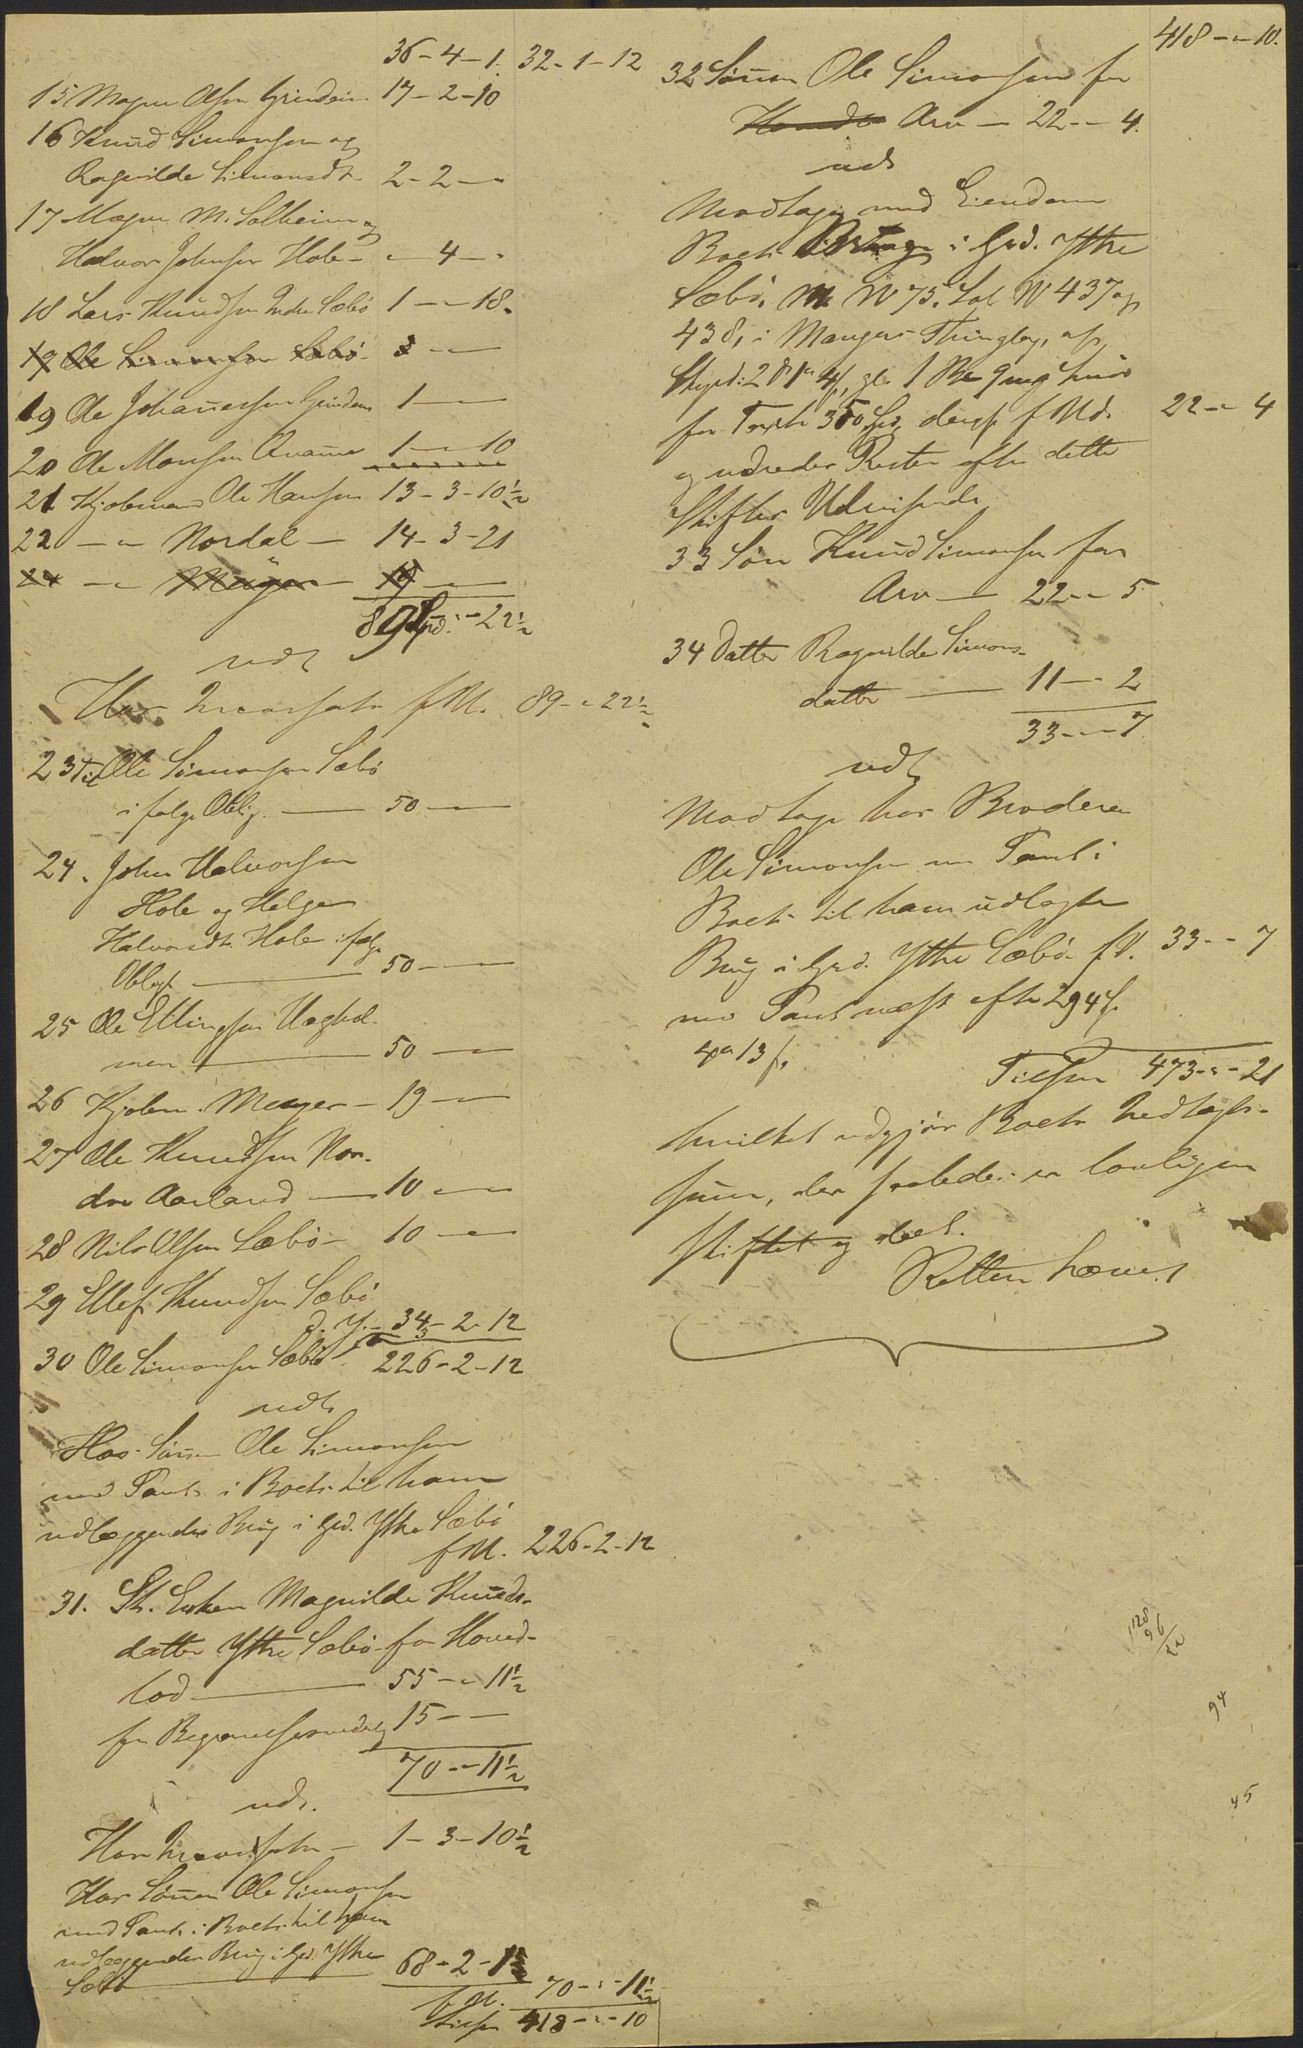 36-4-1. 32-1-12
15 Magne Olsen Grindeim 17-2-10
16 Knud Simonsen og
Ragnilde Simonsdt. 2-2-"
17 Magne M. Solheim og
Halvor Johnsen Hole - " 4 - "
18 Lars Knudsen Indre Sæbö 1 - " 18.
19 Ole Simonsen Sæbö 3 - "
19 Ole Johannessen Grindem 1 - "
20 Ole Monsen Qvamme 1 - " 10
21 Kjøbmand Ole Hansen 13-3-10½
22 - " - Nordal - 14-3-21
24 - " - Meyer - 19 - "
89 Spd. " - 22½
udl.
Hos Incassator f M. 89 - " 22½
23 Til Ole Simonsen Sæbö
ifølge Oblig. 50 - "
24. John Halvorsen
Hole og Helge
Halvorsdt. Hole ifølge
Obligt. 50 - "
25 Ole Ellingsen
men 50 - "
26 Kjøbm. Meyer - 19 - "
27 Ole Knudsen Nor-
dre Aarland 10 - "
28 Nils Olsen Sæbö 10 - "
29 Ellef Knudsen Sæbö
d. Y. - 34-2-12
30 Ole Simonsen Sæbö 3
226-2-12
udl.
Hos Sönnen Ole Simonsen
med Pant i Boets til ham
udlæggendes Brug i Grd. Ytre Sæbö
f M. 226-2-12
31. St. Enken Magnilde Knuds-
datter Ytre Sæbö for Hoved-
lod 55 - " 11½
for Begravelsesudlæg 15 - "
70 - " 11½
udl.
Hos Incassator - 1-3-10½
Hos Sönnen Ole Simonsen
med Pant i Boets til ham
udlæggendes Brug i Grd. Ytre
Sæbö 68-2-1
f M. 70 - " - 11½
Tilsm 418 - " - 10
418 - " 10.
32 Sönnen Ole Simonsen for
Hoved Arv - 22 - " 4.
udl.
Modtager med Eiendom
Boets Brug i Grd. Ytre
Sæbö, M. N 73, Löb N 437 og
438, i Manger Thinglag, af
for Taxten 350 Spd. f Ud. 22 - " 4
og udreder Resten efter dette
Skiftes Udvisende
33 Sön Knud Simonsen for
Arv - 22 - " 5
34 Datter Ragnilde Simons-
datter 11 - " 2
33 - " - 7
udl.
Modtage hos Broderen
Ole Simonsen med Pant i
Boets til ham udlagte
Brug i Grd. Ytre Sæbö f M. 33 - " 7
med Pant næst efter 294 Sp.
4 ort 13 s.
Tilsm 473 - " - 21
hvilket udgjör Boets Indtægts-
sum, der saaledes er lovligen
skiftet og delt.
Retten hævet
128
96
22
94
45